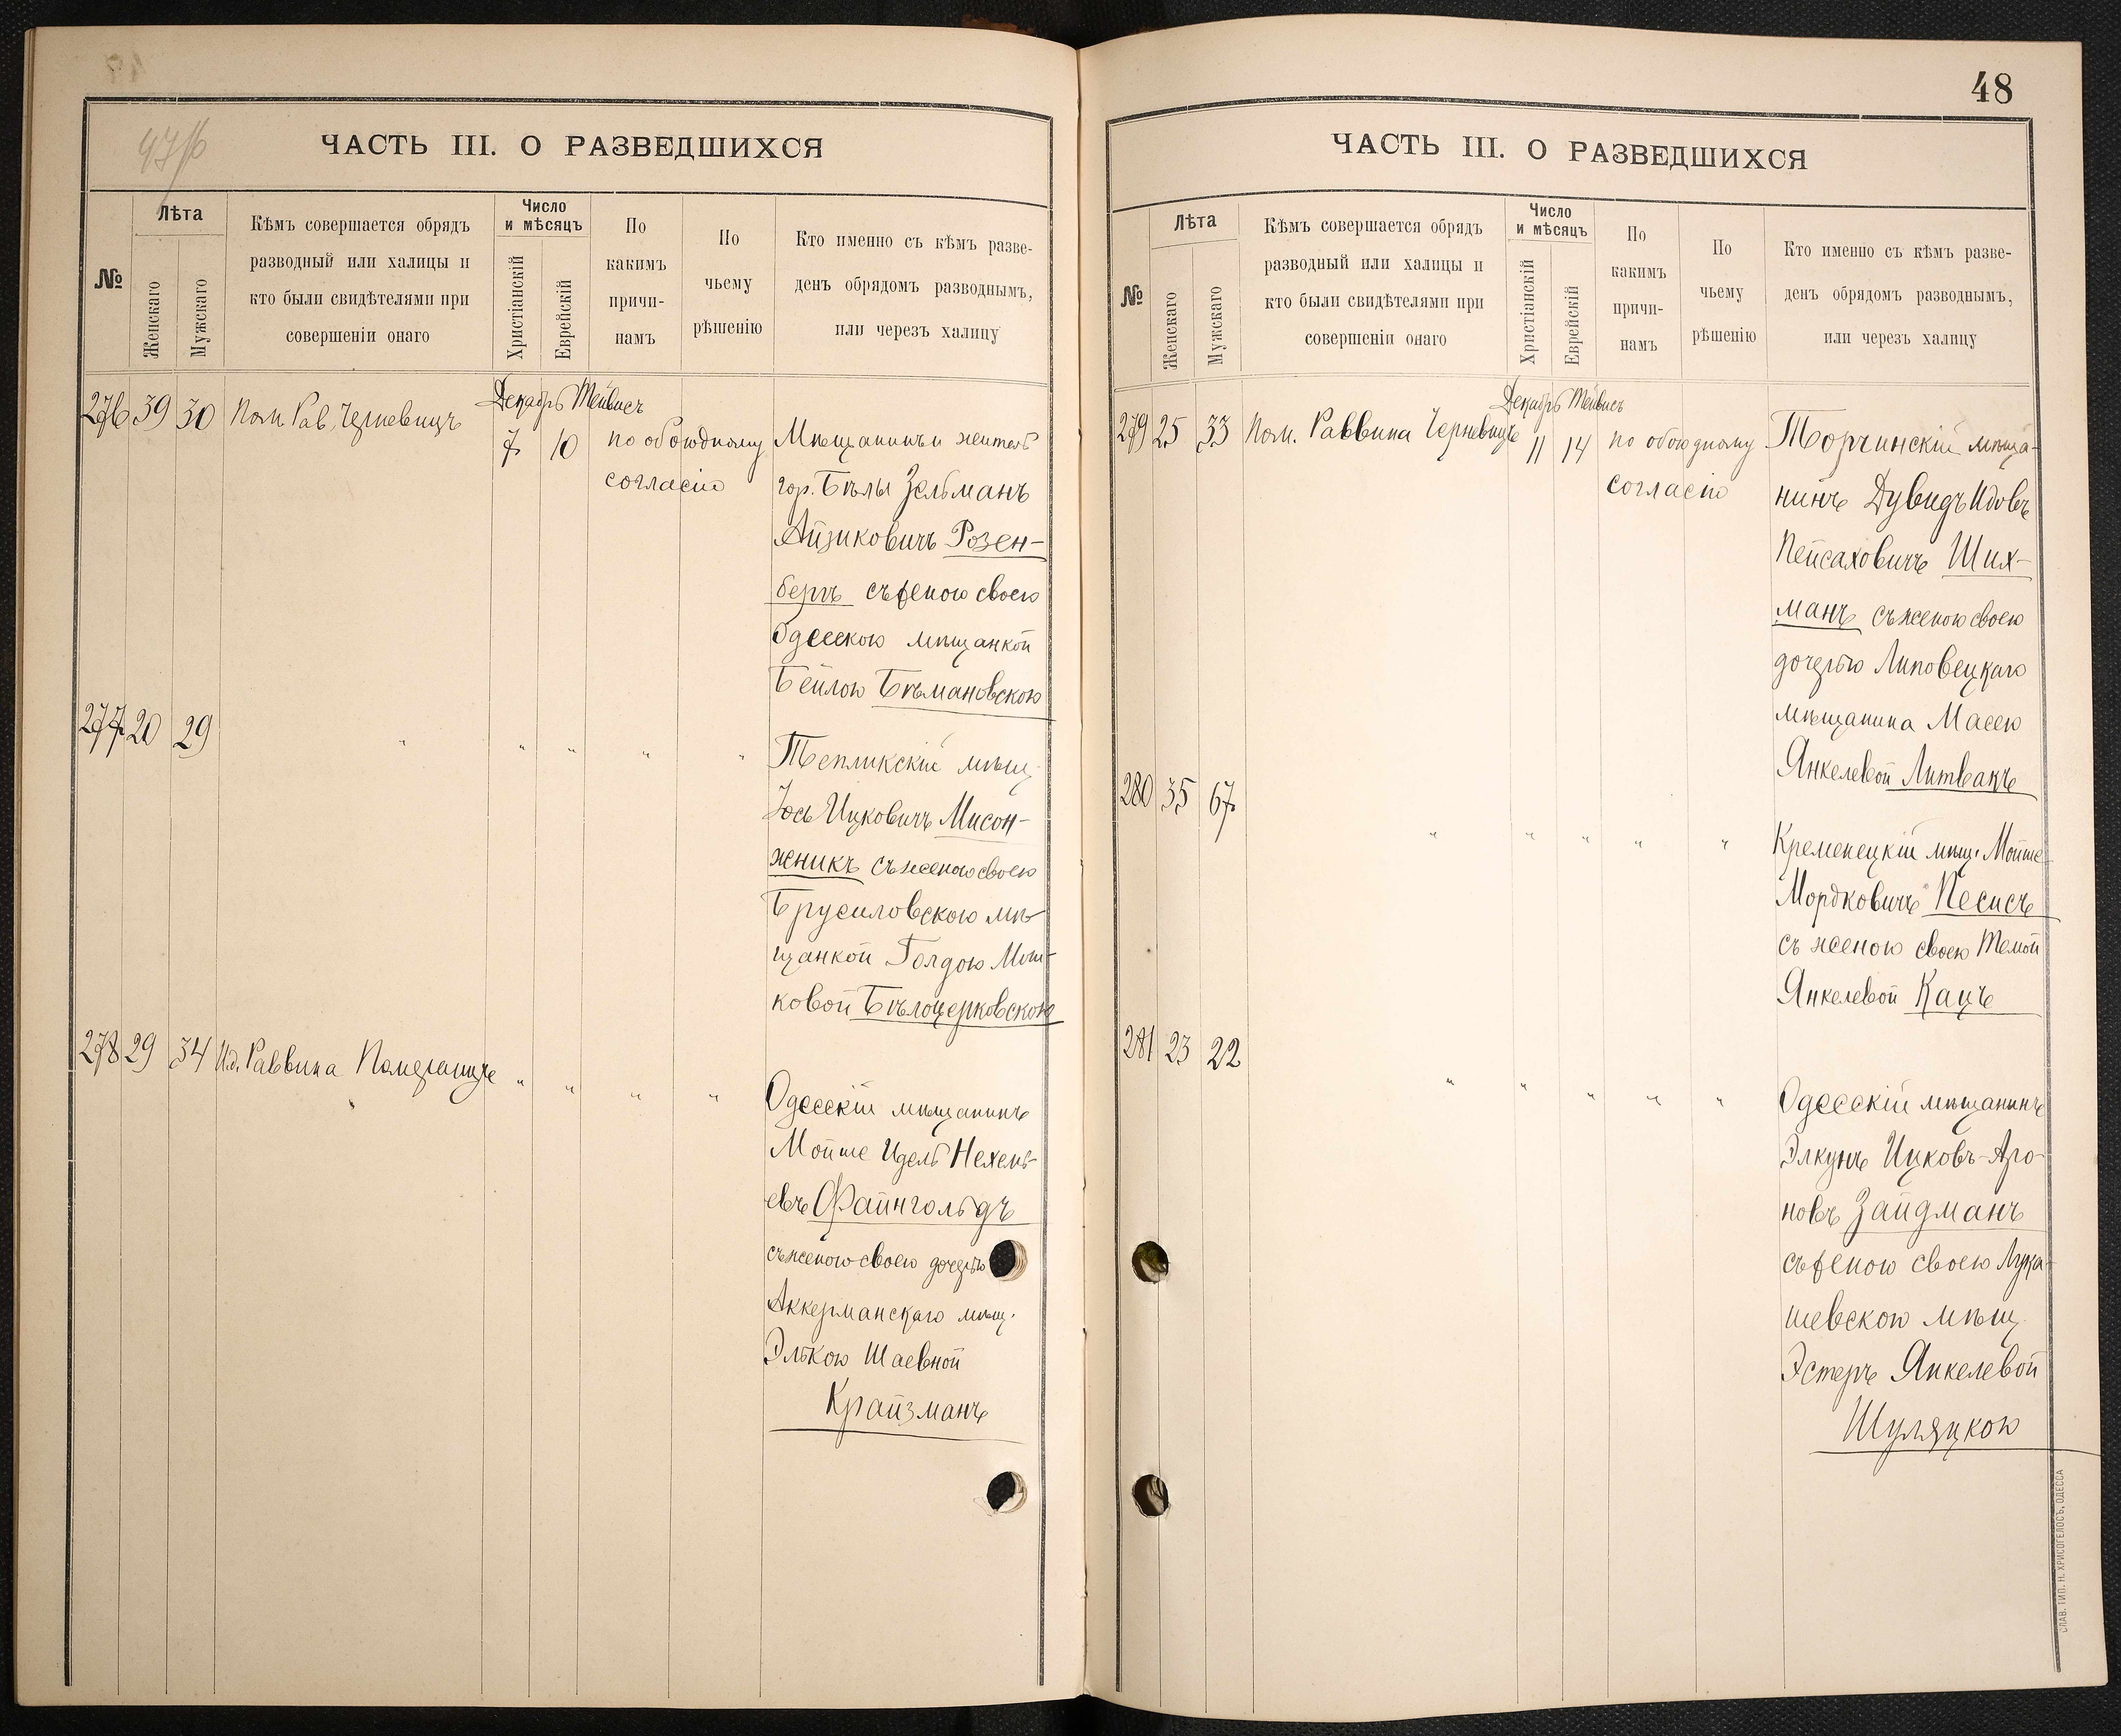 47/б
ЧАСТЬ III. О РАЗВЕДШИХСЯ
№
Лѣта
Женскаго
Мужскаго
Кѣмъ совершается обрядъ
разводный или халицы и
кто были свидѣтелями при
совершеніи онаго
Число
и мѣсяцъ
Христіанскій
Еврейскій
По
какимъ
причи-
намъ
По
чьему
рѣшенію
Кто именно съ кѣмъ разве-
денъ обрядомъ разводнымъ,
или черезъ халицу
276 39 30 Пом. Рав. Черневицъ
Декабрь Тейвисъ
7 10
по обоюдному
согласію
Мѣщанинъ и житель
гор. Бѣлы Зельманъ
Айзиковичъ Розен-
бергъ съ женою своею
Одесскою мѣщанкой
Бейлою Бѣмановскою
277 20 29 " " " " "
Тепликскій мѣщ.
Іось Ицковичъ Мисон-
жникъ съ женою своею
Брусиловскою мѣ-
щанкой Голдою Мош-
ковой Бѣлоцерковскою
278 29 34 И.д. Раввина Померанцъ " " " "
Одесскій мѣщанинъ
Мойше Идель Нехемь-
евъ Файнгольдъ
съ женою своею дочерью
Аккерманскаго мѣщ.
Элькою Шаевной
Крайзманъ
48
ЧАСТЬ III. О РАЗВЕДШИХСЯ
№
Лѣта
Женскаго
Мужскаго
Кѣмъ совершается обрядъ
разводный или халицы и
кто были свидѣтелями при
совершеніи онаго
Число
и мѣсяцъ
Христіанскій
Еврейскій
По
какимъ
причи-
намъ
По
чьему
рѣшенію
Кто именно съ кѣмъ разве-
денъ обрядомъ разводнымъ,
или черезъ халицу
279 25 33 Пом. Раввина Черневицъ
Декабрь Тейвисъ
11 14
по обоюдному
согласію
Торчинскій мѣща-
нинъ Дувидъ Идовъ
Пейсаховичъ Ших-
манъ съ женою своею
дочерью Липовецкаго
мѣщанина Масею
Янкелевой Литвакъ
280 35 67 " " " " "
Кременецкій мѣщ. Мойше
Мордковичъ Песисъ
съ женою своею Темой
Янкелевой Кацъ
281 23 22 " " " " "
Одесскій мѣщанинъ
Элкунъ Ицковъ-Аро-
новъ Зайдманъ
съ женою своею Лука-
шевскою мѣщ.
Эстеръ Янкелевой
Шуляцкою
СЛАВ. ТИП. Н. ХРИСОГЕЛОСЪ, ОДЕССА